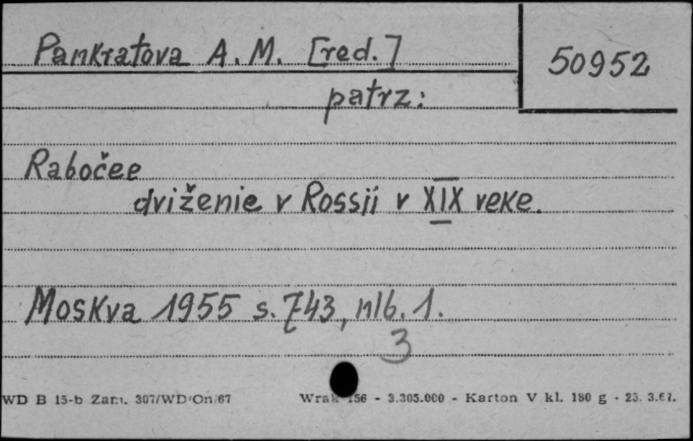 Pankratova A. M. [red.]
50952
patrz:
Rabočee
dviženie v Rossji v XIX veke.
Moskva 1955 s. 743, nlb. 1.
3
WD B 15-b Zam. 307/WD/On/67
156 - 3.305.000 - Karton V kl. 180 g - 23. 3.67.